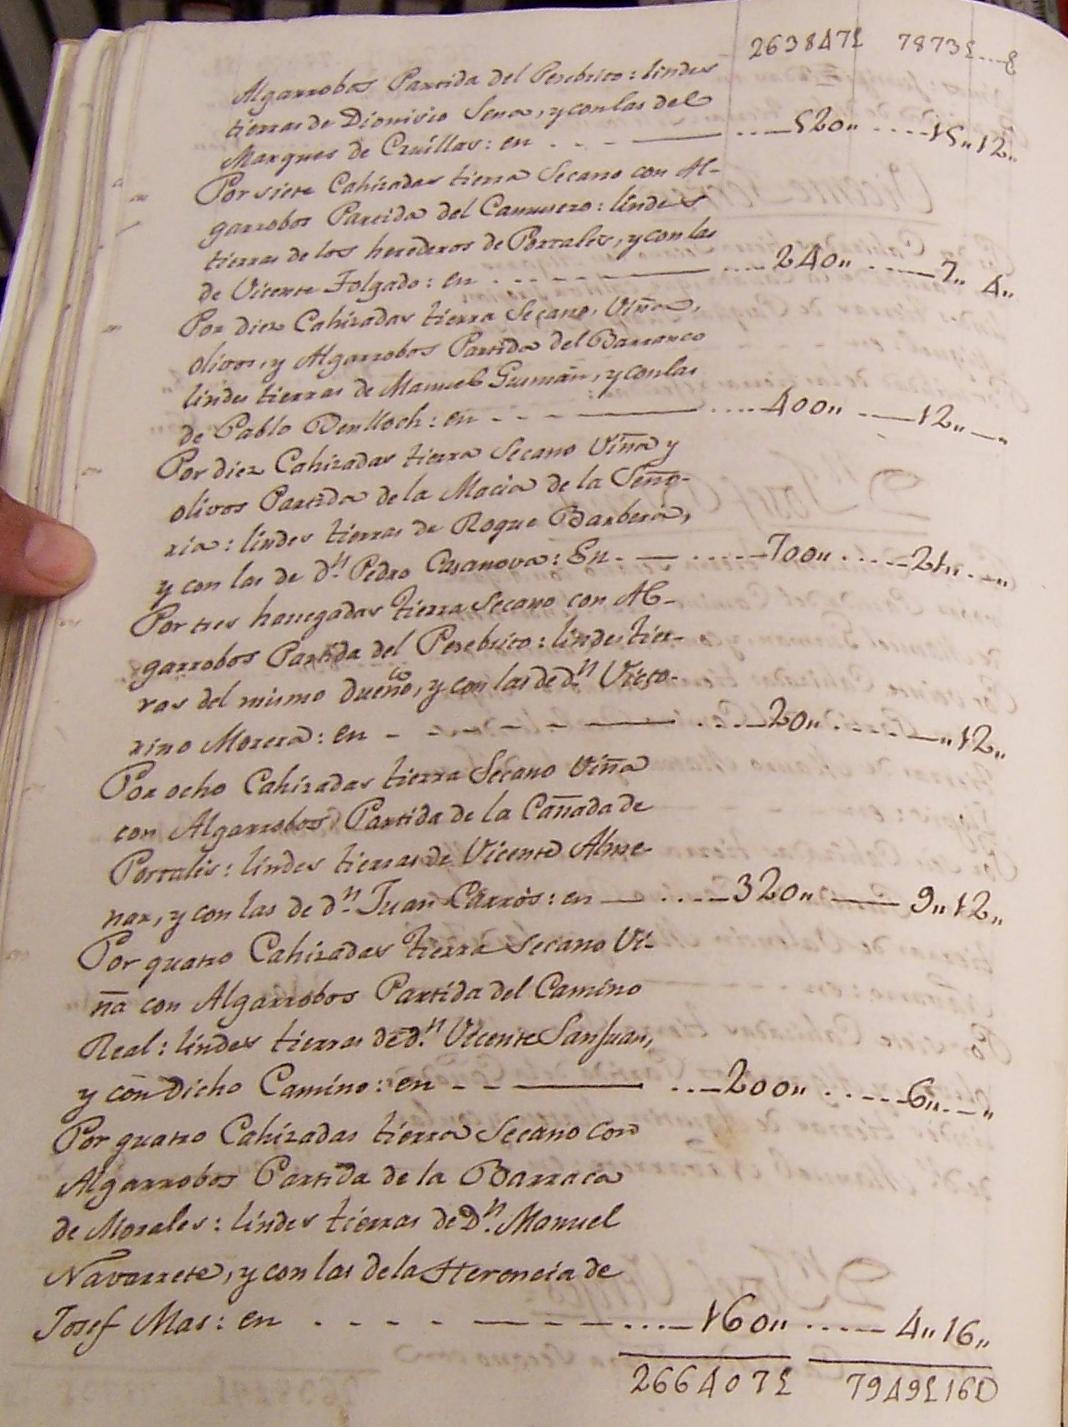 263847£ 7873£...8
Algarrobos Partida del Peresbrito: lindes
tierras de Dionisio Sena, y con las del
Marques de Cruillas: en . . - —— ....520,, ....15,,12,,
Por siete Cahizadas tierra Secano con Al-
garrobos Partida del Camusero: lindes
tierras de los herederos de Portales, y con las
de Vicente Folgado: en . . . - - - —— ....240,, .....7,, 4,,
Por diez Cahizadas tierra Secano, Viña,
olivos, y Algarrobos Partida del Barranco
lindes tierras de Manuel Gusmán, y con las
de Pablo Benlloch: en - - - —— .....400,, ——12,,—,,
Por diez Cahizadas tierra Secano Viña y
olivos Partida de la Macia de la Seño-
ria: lindes tierras de Roque Barberá,
y con las de dn. Pedro Casanova: En. — .....700,, .....21,,...,,
Por tres hanegadas tierra Secano con Al-
garrobos Partida del Pesebrito: lindes tier-
ras del mismo dueño, y con las de dn.
rino Morera: en - - - - - - —— ....20,, ....—,,12,,
Por ocho Cahizadas tierra Secano Viña
con Algarrobos Partida de la Cañada de
Portales: lindes tierras de Vicente Alme-
nar, y con las de dn. Juan Carrós: en — ....320,, —— 9,,12,,
Por quatro Cahizadas tierra Secano Vi-
ña con Algarrobos Partida del Camino
Real: lindes tierras de dn. Vicente SanJuan,
y con Dicho Camino: en - - —— ...200,, .....6,,.—,,
Por quatro Cahizadas tierra Secano con
Algarrobos Partida de la Barraca
de Morales: lindes tierras de Dn. Manuel
Navarrete, y con las de la Herencia de
Josef Mas: en . . . . - — - - ....160,, ..... 4,,16,,
266407£ 7949£16D